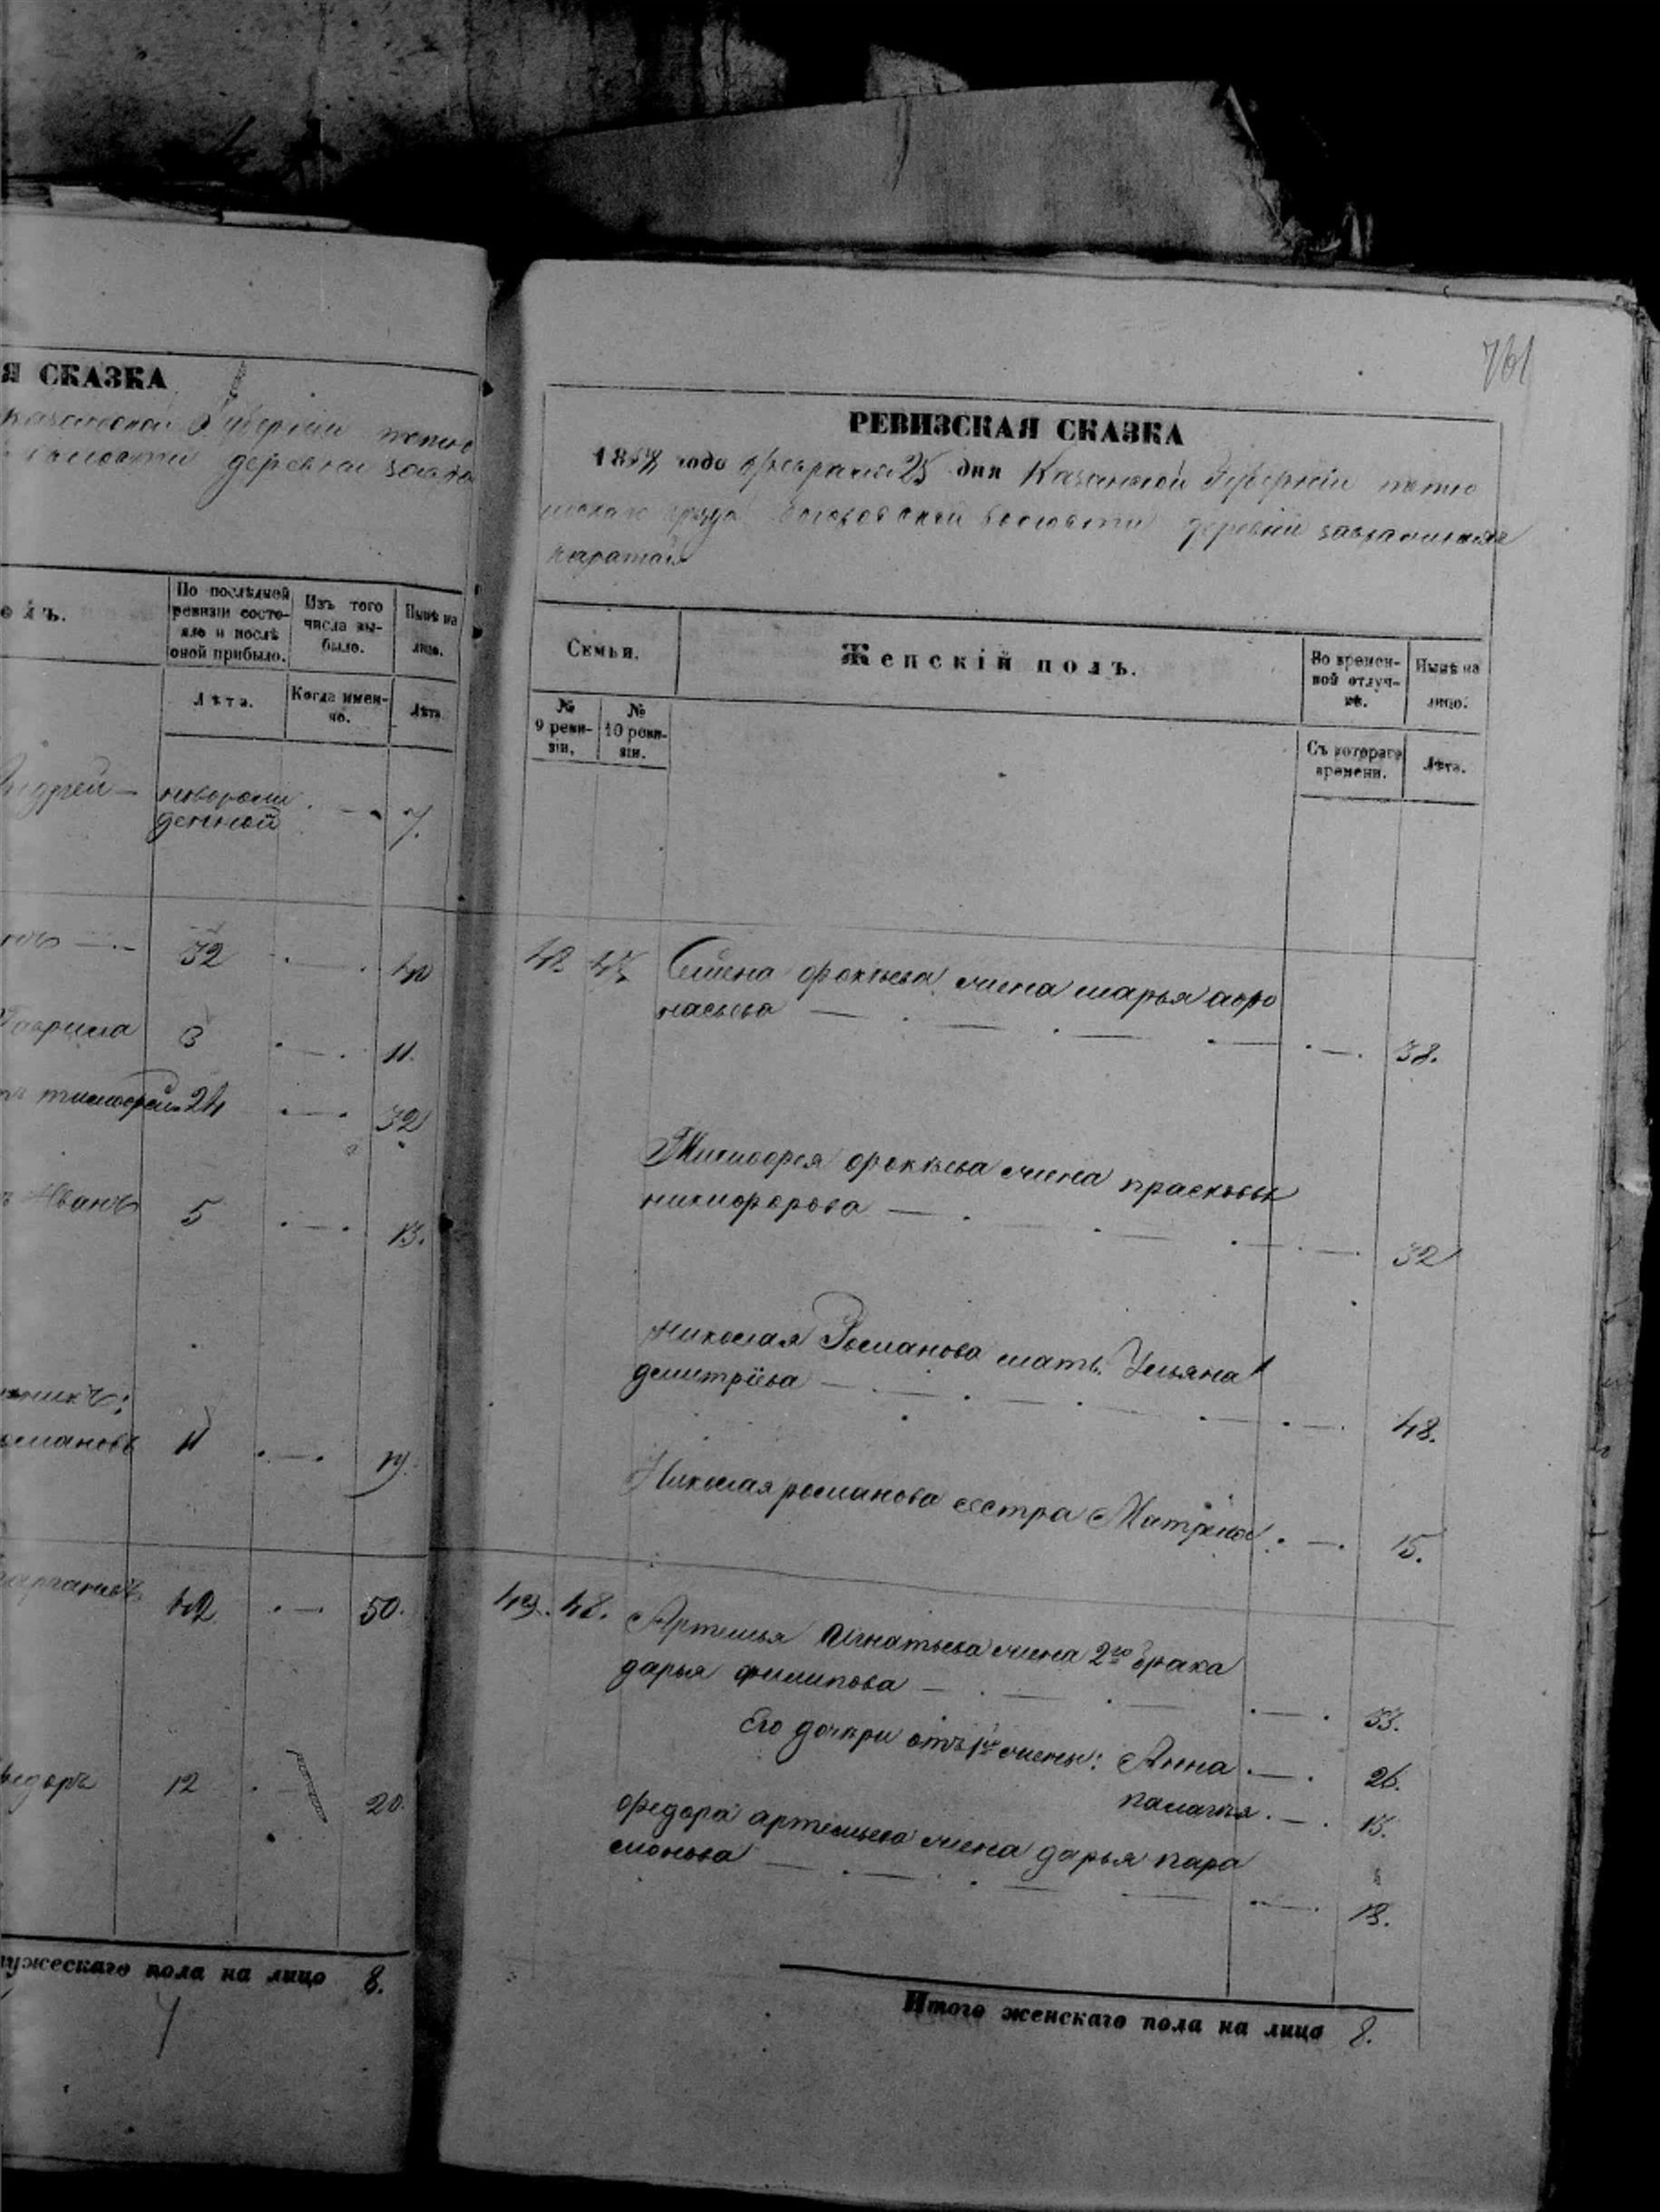 Я СКАЗКА
казанской Губерніи тетю
волости деревни
олъ.
По послѣдней ревизіи состо-
яло и послѣ
оной прибыло.
Изъ того
числа вы-
было.
Нынѣ на
лицо.
Лѣта.
Когда имен-
но.
Лѣта
Андрей — новорож
денной . — . 7.
32 . — . 40
Гаврила 3 . — . 11.
тимофей 24 . — . 32
Иванъ 5 . — . 13.
романовъ 11 . — . 19.
42 . — 50.
федоръ 12 . — 20.
мужескаго пола на лицо 8.
761
РЕВИЗСКАЯ СКАЗКА
1858 года февраля 25 дня Казанской Губерніи тетю
шскаго уезда волости деревни
каратай
Семьи.
Женскій полъ.
Во времен-
ной отлуч-
кѣ.
Нынѣ на
лицо.
№
9 реви-
зіи.
№
10 реви-
зіи.
Съ котораго
времени.
Лѣта.
48 47 Семена фоктева жена марья афо
насьева — . — . — . — . 38.
Тимофея фоктева жена прасковья
никифорова — . — . — . 32
Николая Романова мать Ульяна
демитріева — . — . — . — . 48.
Николая романова сестра Матрена . — . 15.
49. 48. Артемья Игнатьева жена 2го брака
дарья филипова — . — . — . — . 33.
Его дочери отъ 1й жены: Анна . — . 26.
палагея . — . 13.
федора артемьева жена дарья пара
монова — . — . — . — . 18.
Итого женскаго пола на лицо 8.